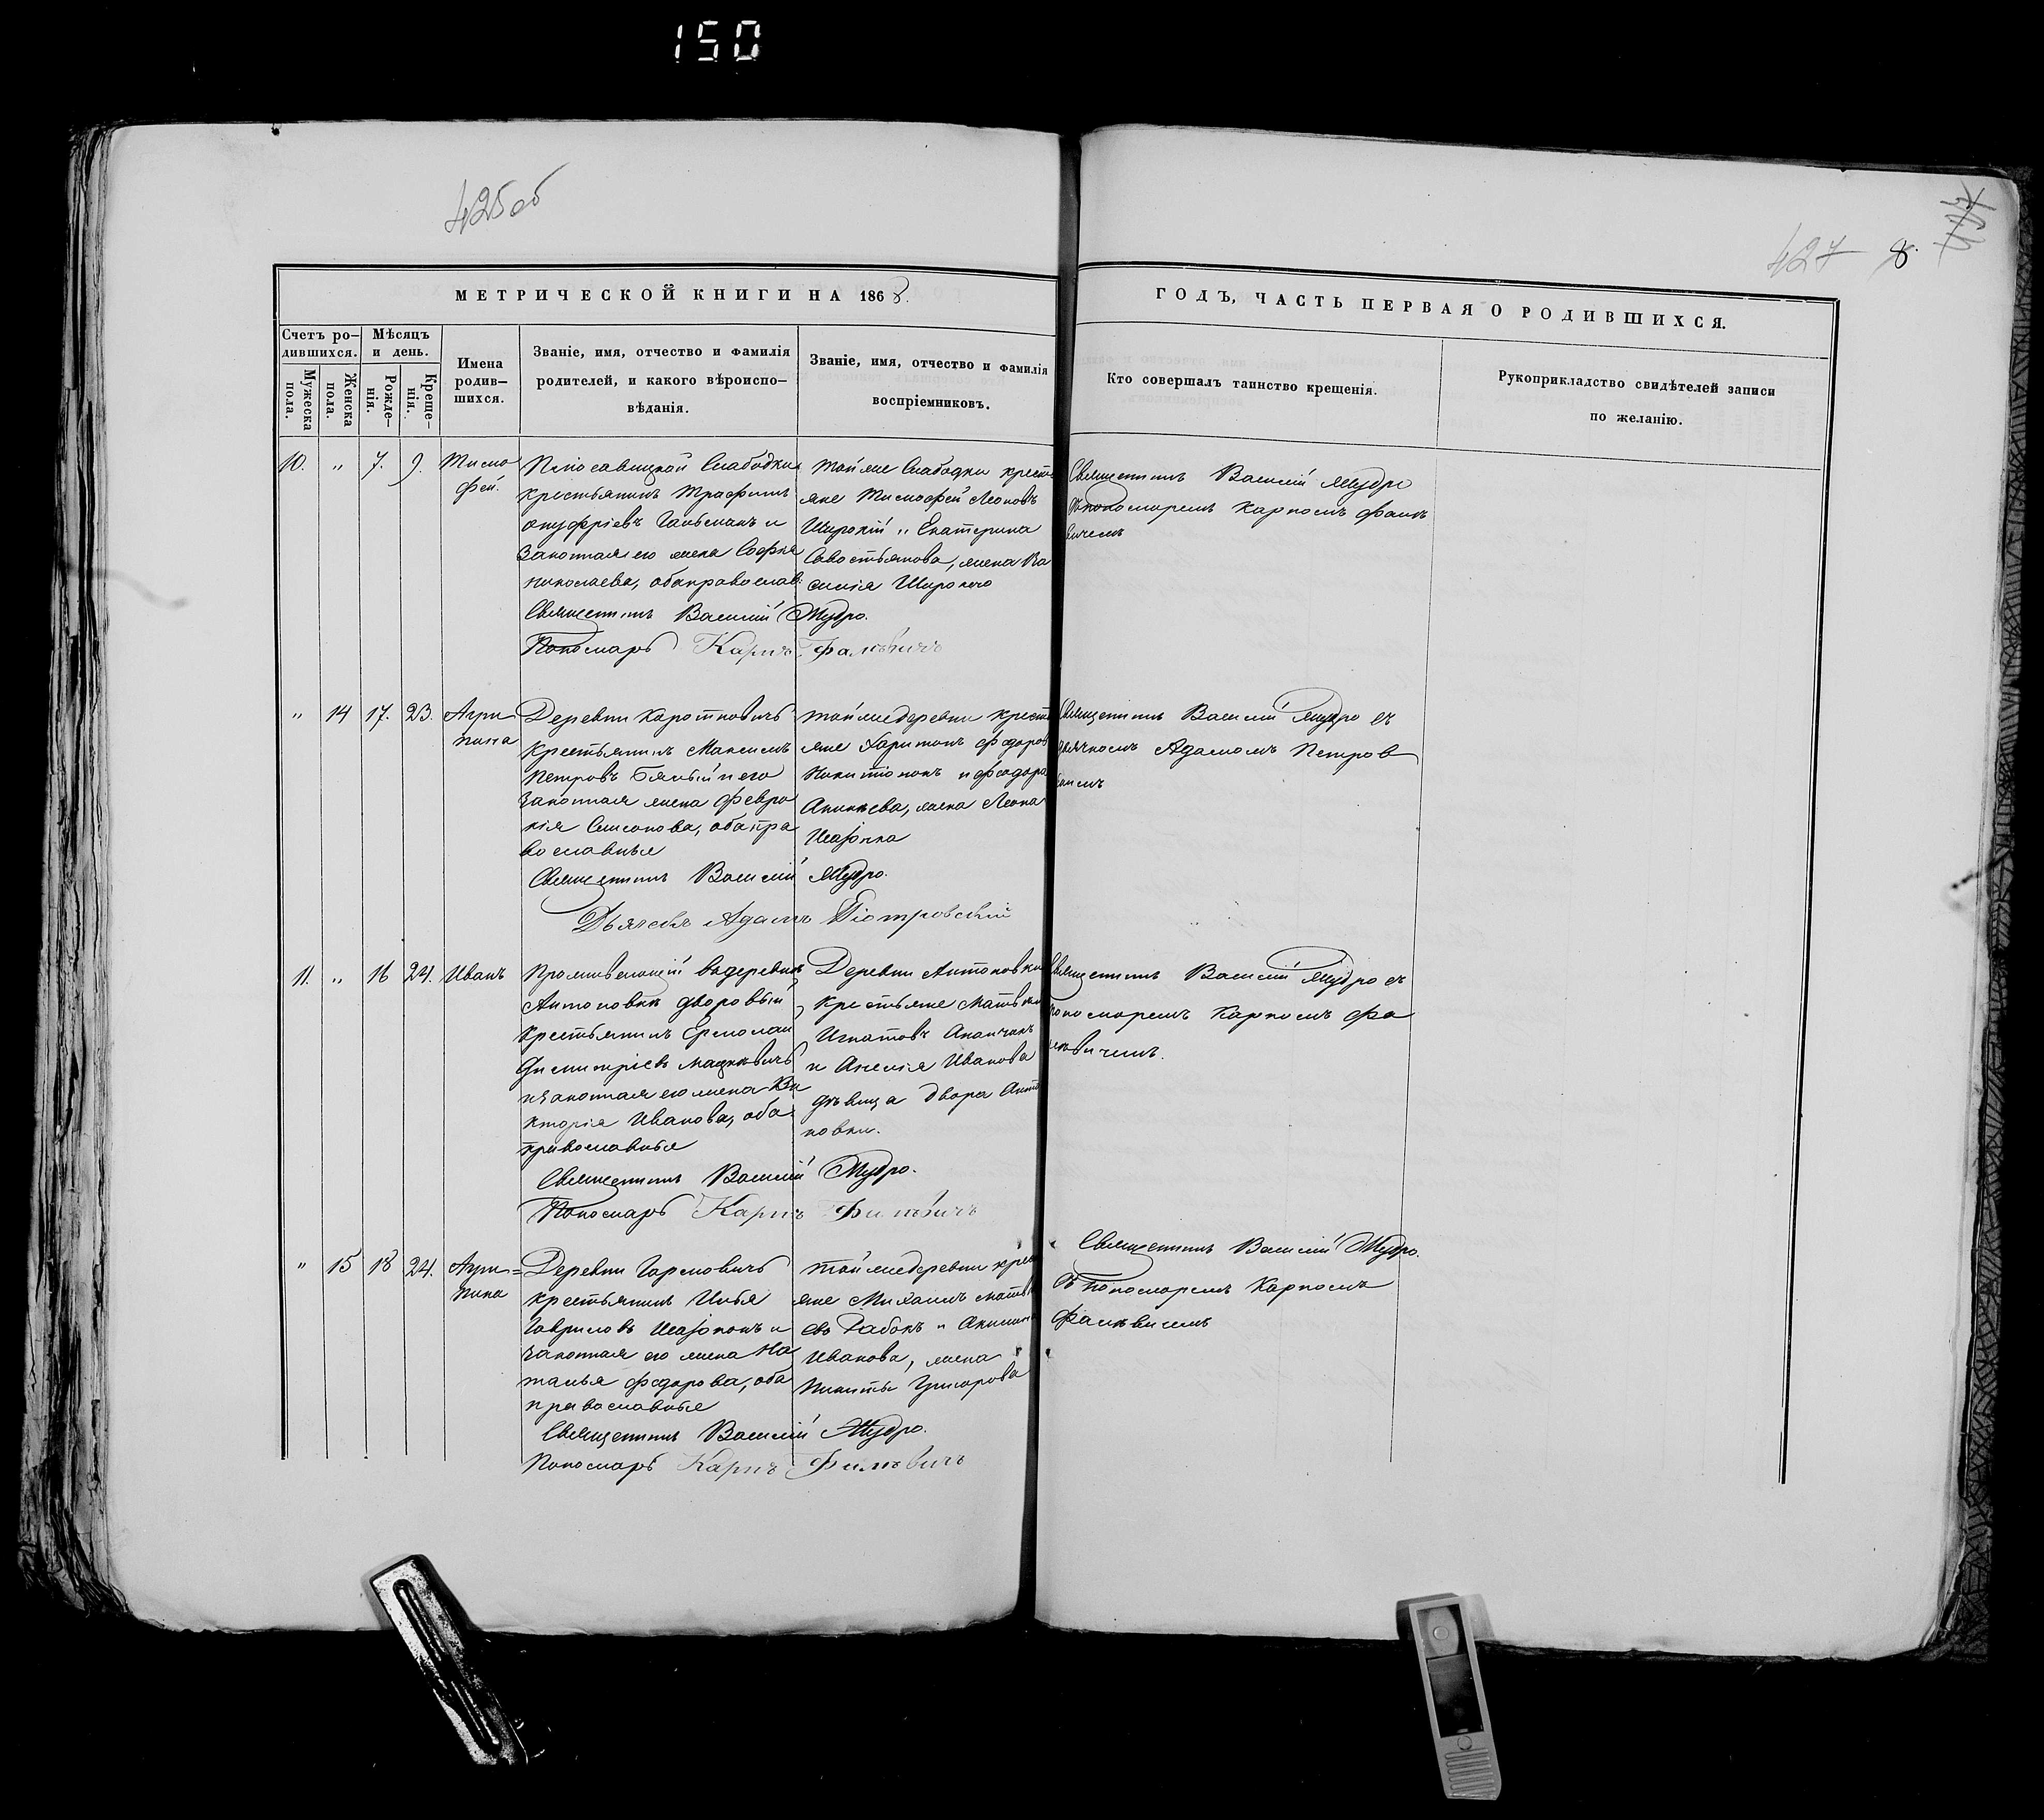 150
425об
427 8.
МЕТРИЧЕСКОЙ КНИГИ НА 1868.
ГОДЪ, ЧАСТЬ ПЕРВАЯ О РОДИВШИХСЯ.
Счетъ ро-
дившихся.
Мужеска
пола.
Женска
пола.
Мѣсяцъ
и день.
Рожде-
нія.
Креще-
нія.
Имена
родив-
шихся.
Званіе, имя, отчество и фамилія
родителей, и какого вѣроиспо-
вѣданія.
Званіе, имя, отчество и фамилія
воспріемниковъ.
Кто совершалъ таинство крещенія.
Рукоприкладство свидѣтелей записи
по желанію.
10. " 7. 9.
Тимо
фей.
Слабодки
крестьянинъ Трофимъ
Онуфріевъ и
Законная его жена Софія
Николаева, оба православ:
Священникъ Василій Мудро.
Пономарь Карпъ Фальвичъ
тойже Слабодки крест
яне Тимофей Леоновъ
Широкій и Екатерина
Савостьянова, жена Ва
силія Широкого
Священникъ Василій Мудро
съ пономаремъ Карпомъ Фаль
вичемъ
" 14 17. 23.
Агри
пина
Деревни Коротковичъ
Крестьянинъ Максимъ
Петровъ Бялый и его
Законная жена Февро
нія Симонова, оба пра
вославныя
Священникъ Василій Мудро.
Дьячекъ Адамъ Піотровскій
тойже деревни крест
яне Харитонъ Федоров
Никитіонокъ и Феодора
Ананьева, жена Леона
Священникъ Василій Мудро съ
дьячкомъ Адамомъ Петров
скимъ
11. " 16 24. Иванъ
Проживающій въ деревнѣ
Антоновкѣ дворовый
Крестьянинъ Ермолай
Димитріевъ Мацкевичъ
и законная его жена Ви
кторія Иванова, оба
православныя
Священникъ Василій Мудро.
Пономарь Карпъ Фальвичъ
Деревни Антоновки
Крестьяне Матвѣй
Игнатовъ
и Анелія Иванова
дѣвица двора Анто
новки.
Священникъ Василій Мудро съ
пономаремъ Карпомъ Фа
львичемъ.
" 15 18 24.
Агри=
пина
Деревни Гармовичъ
крестьянинъ Илья
Гавриловъ и
законная его жена На
талья Федорова, оба
православныя
Священникъ Василій Мудро.
Пономарь Карпъ Фальвичъ
тойже деревни крест
яне Михаилъ Матвѣ
евъ Рабокъ и
Иванова, жена
Никиты Григорова
Священникъ Василій Мудро.
съ пономаремъ Карпомъ
Фальвичемъ